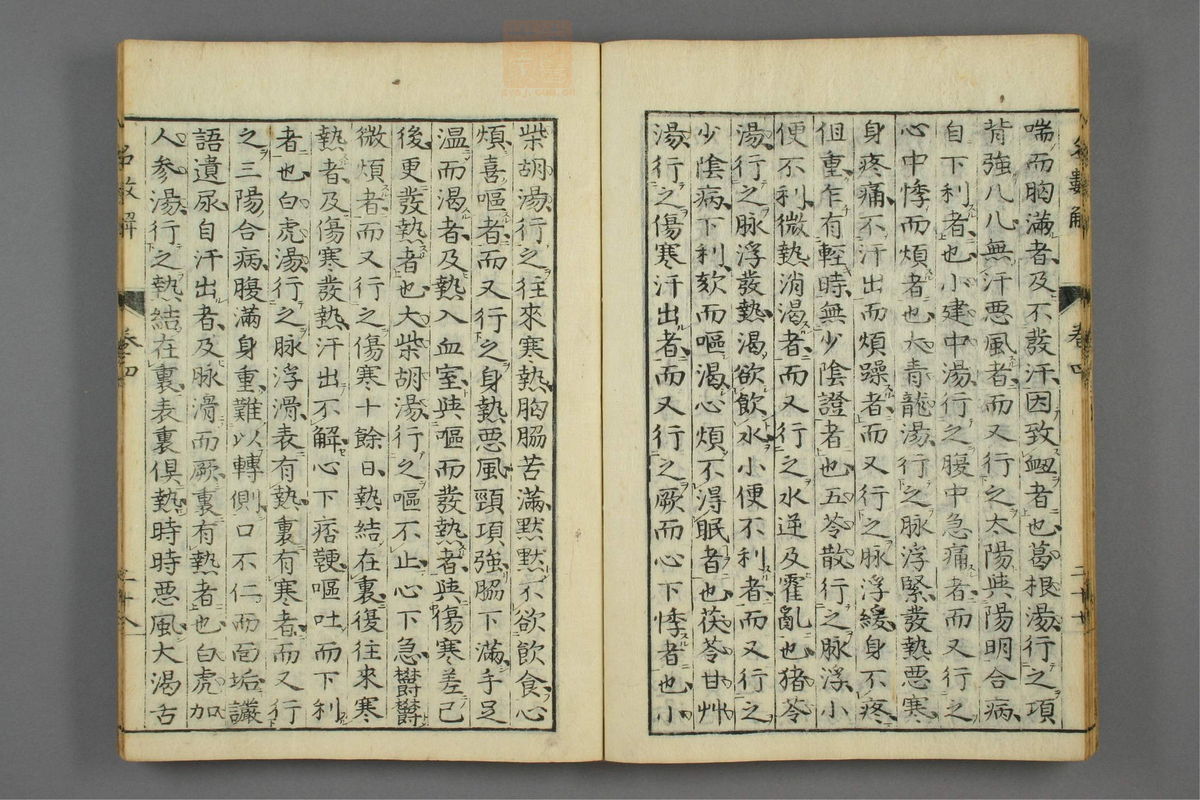 喘而胸滿者及不發汗因致衂者也葛根湯行之項
背強八八無汗悪風者而又行之太陽與陽明合病
自下利者也小建中湯行之腹中急痛者而又行之
心中悸而煩者也大青龍湯行之脉浮緊發熱悪寒
身疼痛不汗出而煩躁者而又行之脉浮緩身不疼
但重乍有輕時無少陰證者也五苓散行之脉浮小
便不利微熱消渴者而又行之水逆及霍亂也猪苓
湯行之脉浮發熱渴欲飲水小便不利者而又行之
少陰病下利欬而嘔渴心煩不得眠者也茯苓甘艸
湯行之傷寒汗出者而又行之厥而心下悸者也小
名數解
卷四
二十七
柴胡湯行之往來寒熱胸脇苦滿默默不欲飲食心
煩喜嘔者而又行之身熱悪風頸項強脇下滿手足
温而渴者及熱入血室與嘔而發熱者與傷寒差已
後更發熱者也大柴胡湯行之嘔不止心下急欝欝
微煩者而又行之傷寒十餘日熱結在裏復往來寒
熱者及傷寒發熱汗出不解心下痞鞕嘔吐而下利
者也白虎湯行之脉浮滑表有熱裏有寒者而又行
之三陽合病腹滿身重難以轉側口不仁而面垢讝
語遺尿自汗出者及脉滑而厥裏有熱者也白虎加
人参湯行之熱結在裏表裏俱熱時時悪風大渴舌
名數解
卷四
二十八